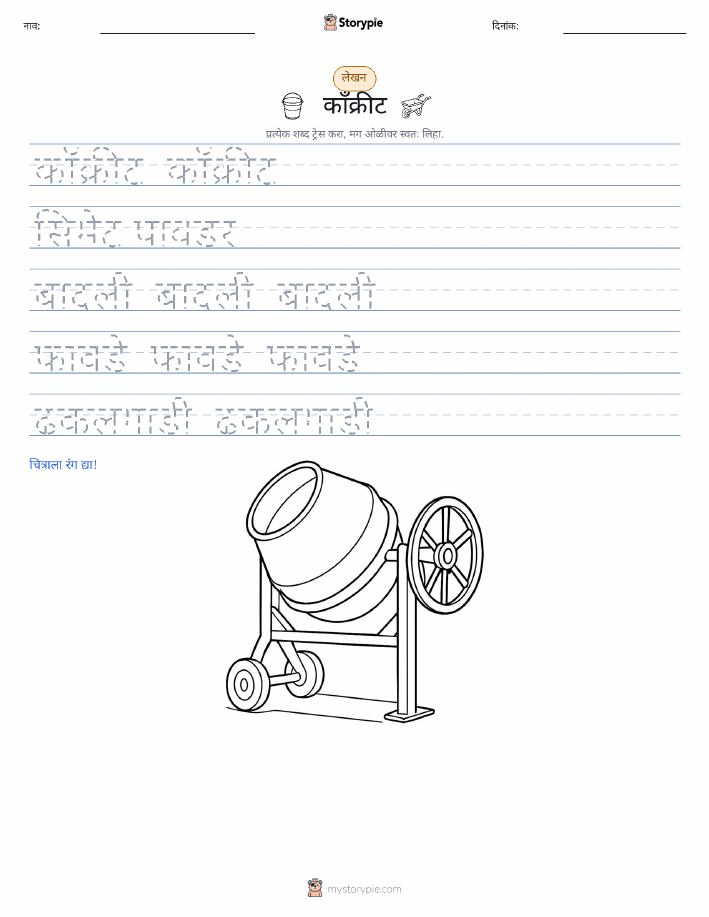 नाव:
Storypie
दिनांक:
लेखन
काँक्रीट
प्रत्येक शब्द ट्रेस करा, मग ओळीवर स्वतः लिहा.
काँक्रीट काँक्रीट
सिमेंट पावडर
बादली बादली बादली
फावडे फावडे फावडे
ढकलगाडी ढकलगाडी
चित्राला रंग द्या!
mystorypie.com